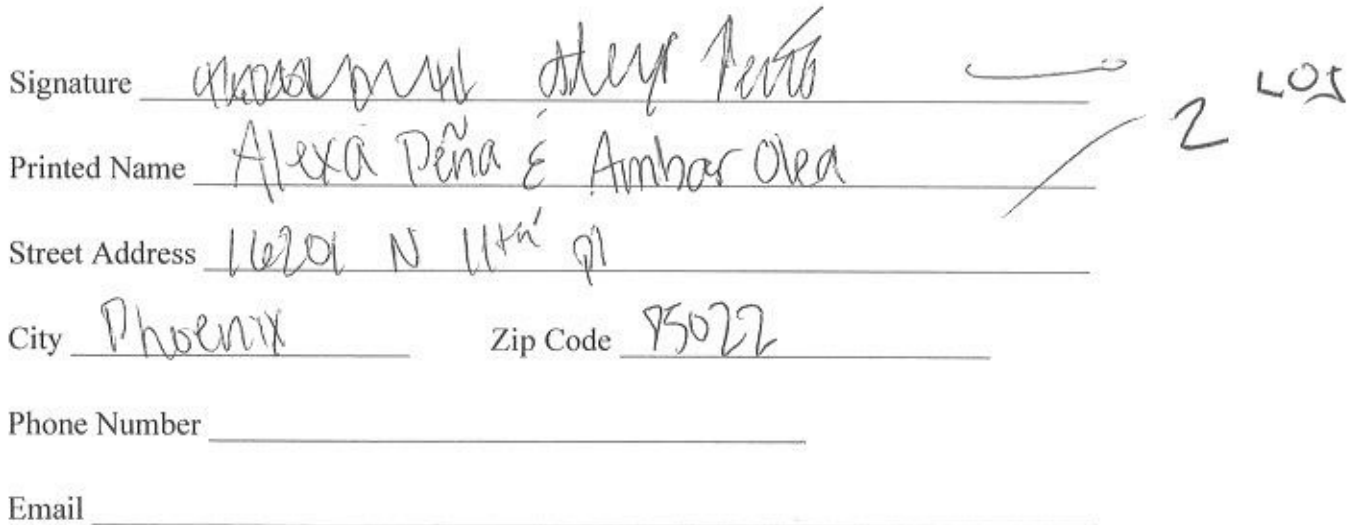 Signature
2 LOS
Printed Name Alexa Peña & Ambar Olea
Street Address 16201 N 11th pl
City Phoenix Zip Code 85022
Phone Number
Email